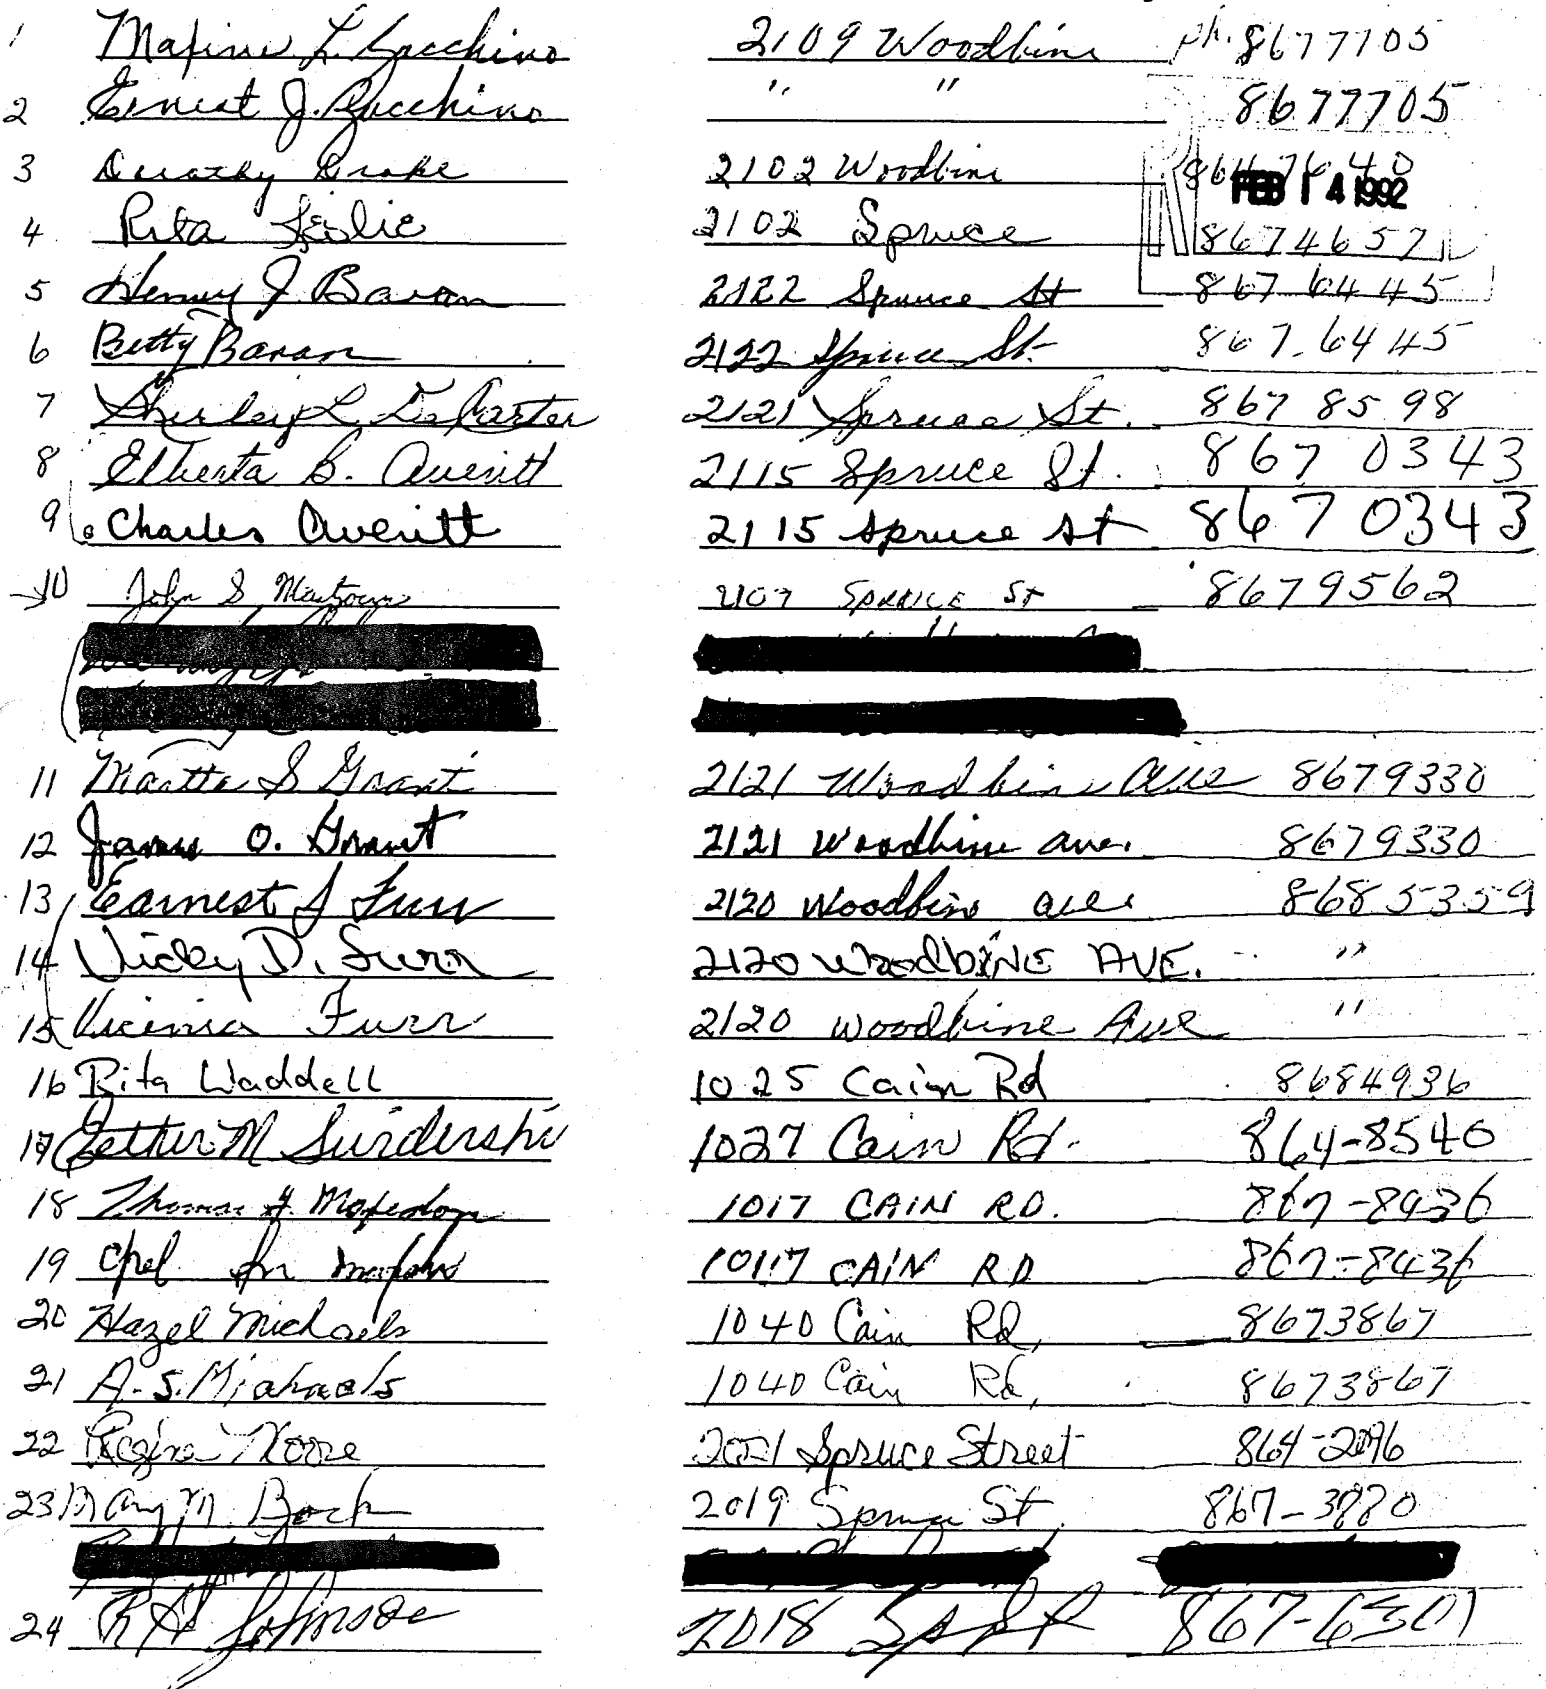 1 Maxine L. Bacchino 2109 Woodbine ph. 8677705
2 Ernest J. Bacchino " " 8677705
3 Dorothy Drake 2102 Woodbine
FEB 14 1992
4 Rita Leslie 2102 Spruce 8674657
5 Henry J Baran 2122 Spruce St 867 6445
6 Betty Baran 2122 Spruce St. 867-6445
7 Shirley L. DeCarter 2121 Spruce St. 867 8598
8 Elberta B. Averitt 2115 Spruce St. 867 0343
9 Charles Averitt 2115 Spruce St 867 0343
10 John S 2107 SPRUCE ST 8679562
11 Martha S Grant 2121 Woodbine Ave 8679330
12 James O. Grant 2121 Woodbine ave. 8679330
13 Earnest J Furr 2120 Woodbine ave. 8685359
14 Vicky D. Furr 2120 WOODBINE AVE. "
15 Vicinia Furr 2120 Woodbine Ave "
16 Rita Waddell 1025 Cain Rd 8684936
17 Esther M 1027 Cain Rd. 864-8540
18 Thomas 1017 CAIN RD. 867-8436
19 1017 CAIN RD 867-8436
20 Hazel Michaels 1040 Cain Rd, 8673867
21 A. S. Michaels 1040 Cain Rd, 8673867
22 Regina Moore 2021 Spruce Street 864-2096
23 Mary M Bock 2019 Spruce St. 867-3880
24 R H Johnson 2018